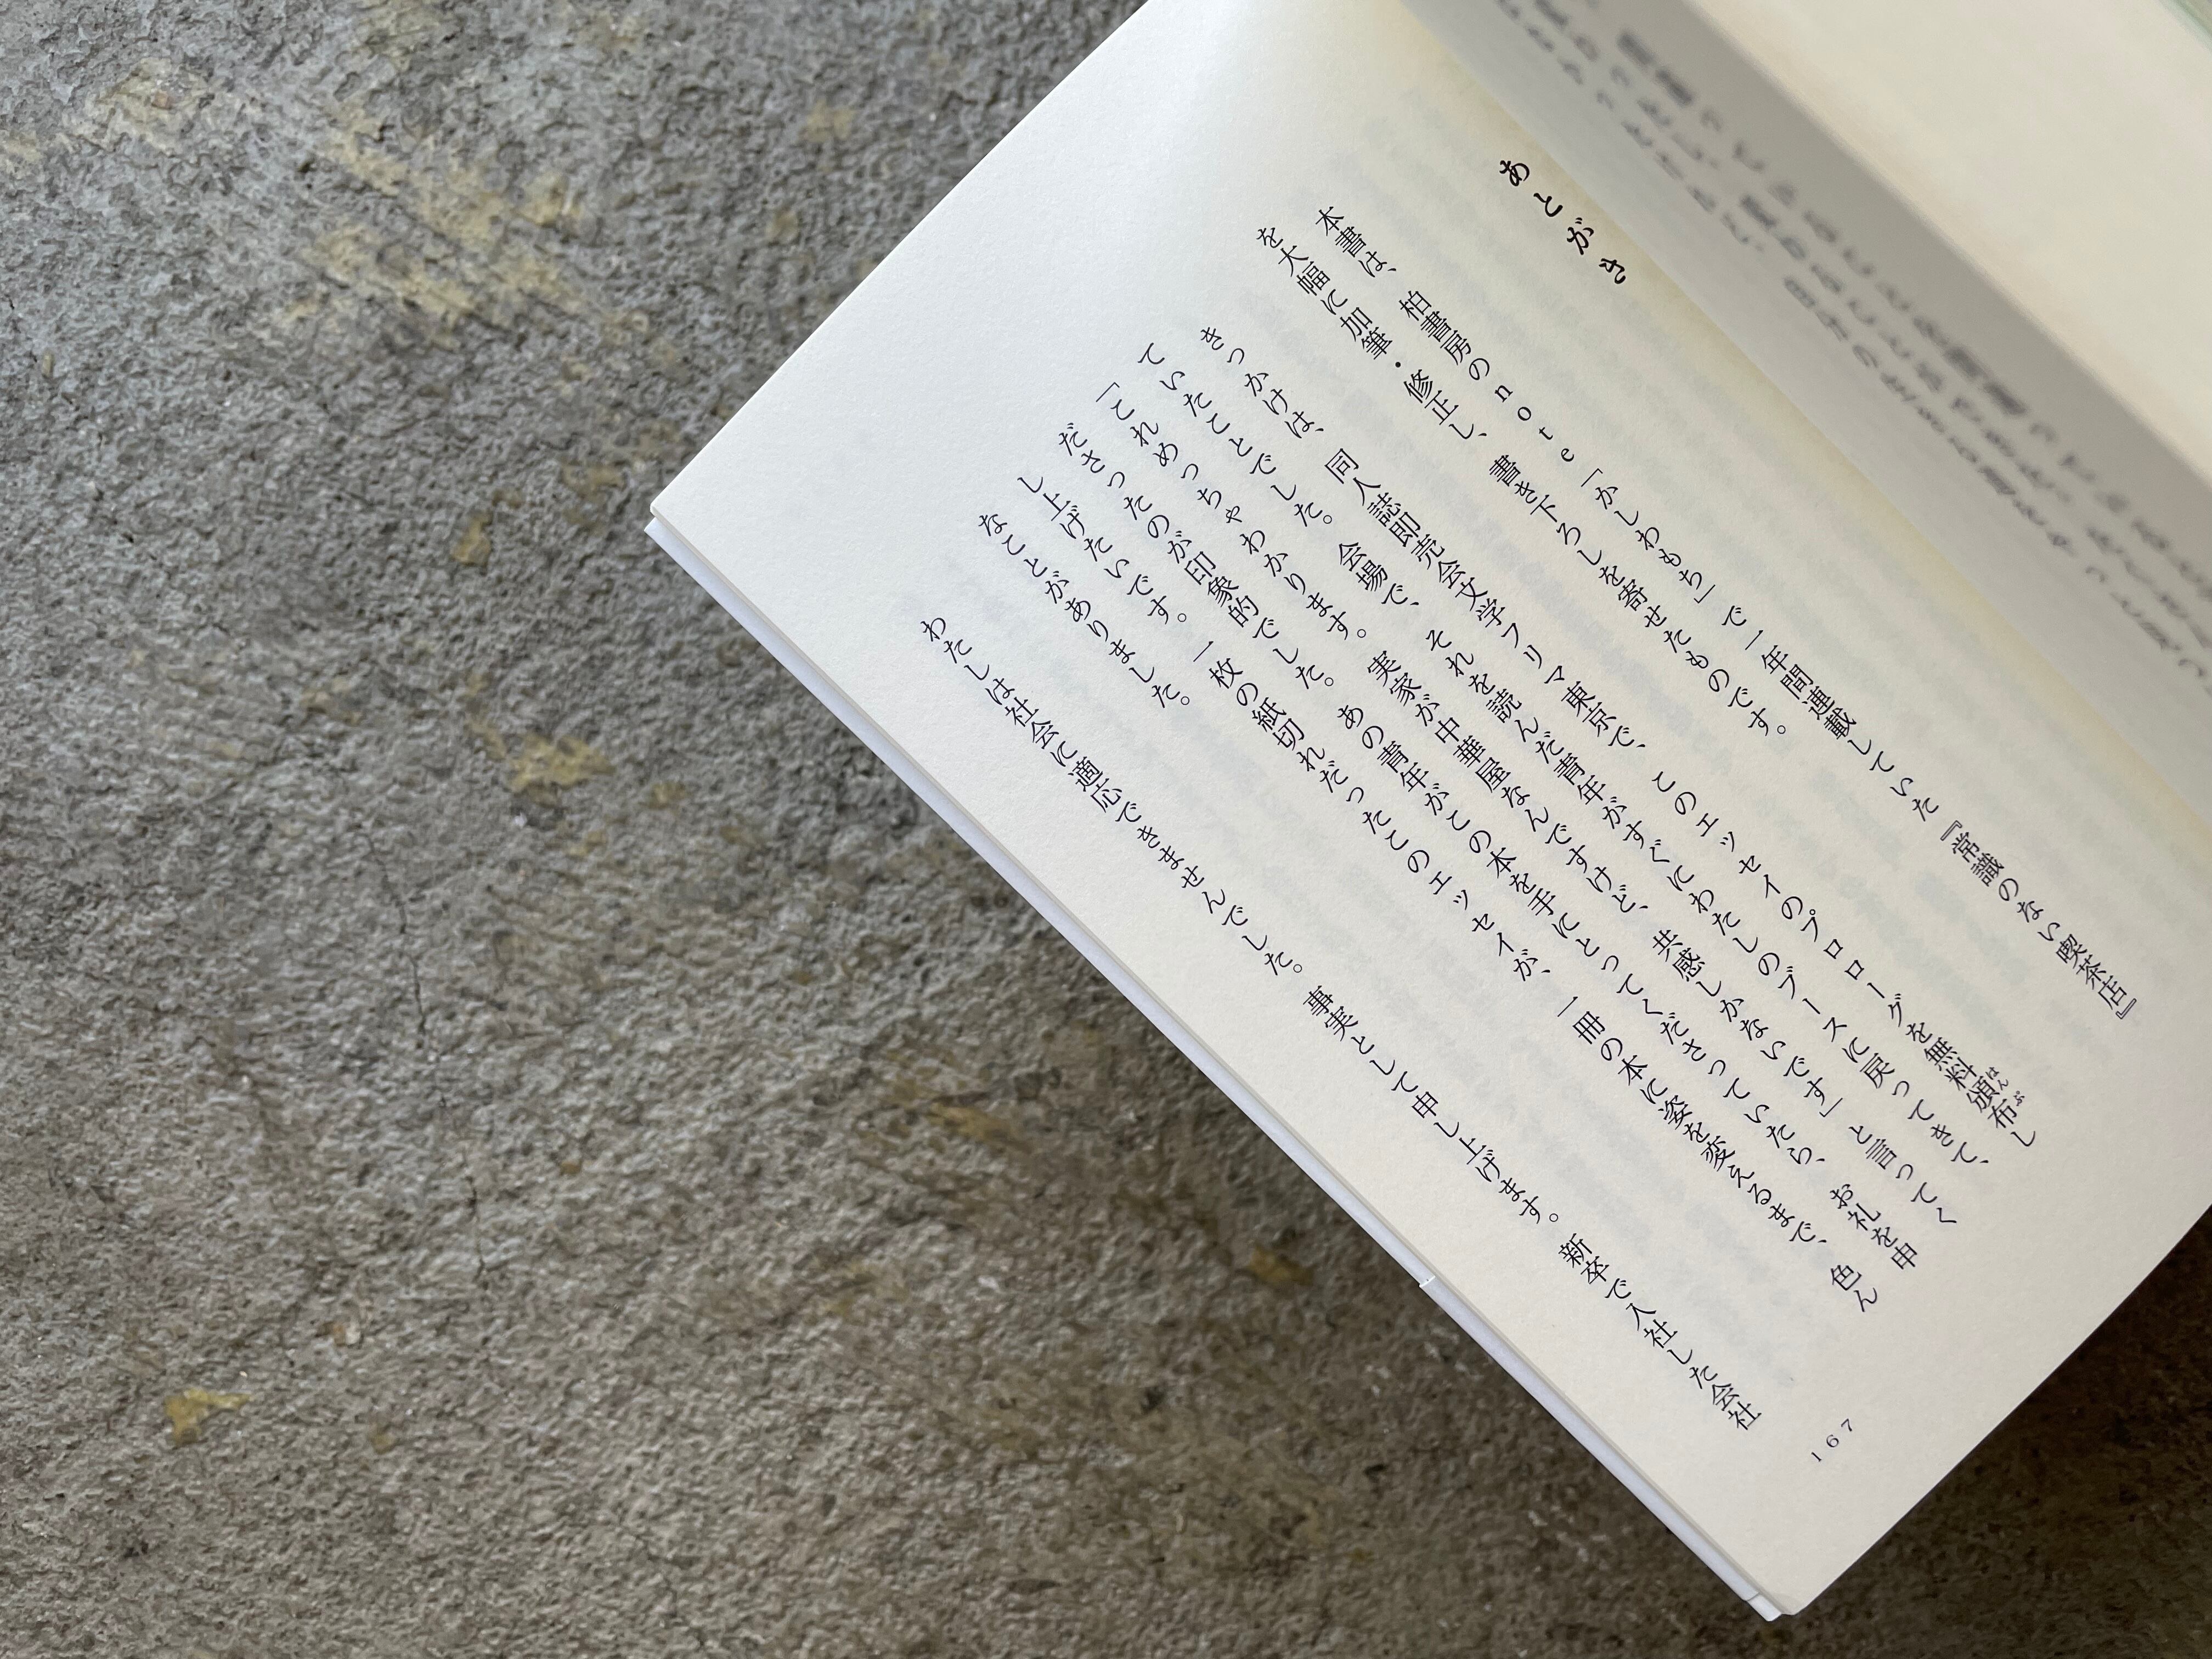 あとがき
本書は、柏書房のnote「かしわもち」で一年間連載していた『常識のない喫茶店』
を大幅に加筆・修正し、書き下ろしを寄せたものです。
きっかけは、同人誌即売会文学フリマ東京で、このエッセイのプロローグを無料頒布し
はんぷ
ていたことでした。会場で、それを読んだ青年がすぐにわたしのブースに戻ってきて、
「これめっちゃわかります。実家が中華屋なんですけど、共感しかないです」と言ってく
ださったのが印象的でした。あの青年がこの本を手にとってくださっていたら、お礼を申
し上げたいです。一枚の紙切れだったこのエッセイが、一冊の本に姿を変えるまで、色ん
なことがありました。
わたしは社会に適応できませんでした。事実として申し上げます。新卒で入社した会社
167